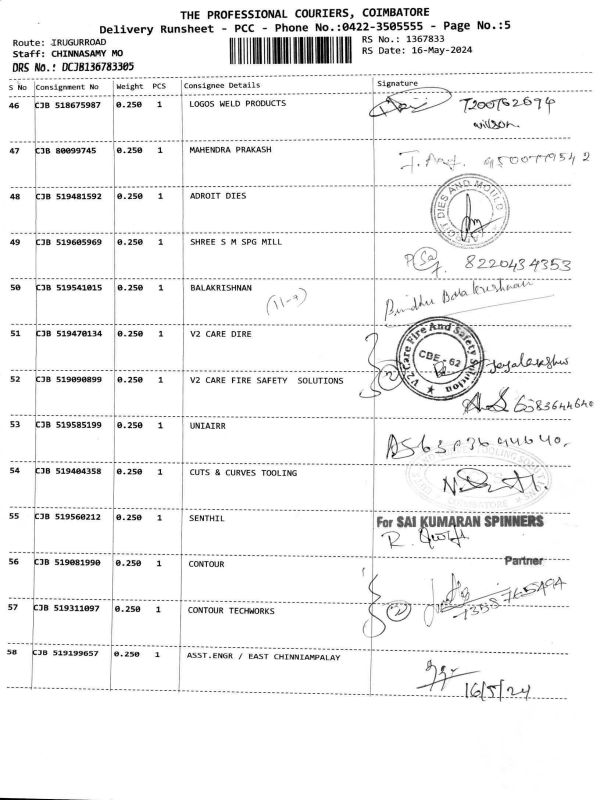 THE PROFESSIONAL COURIERS, COIMBATORE
Delivery Runsheet - PCC - Phone No.:0422-3505555 - Page No.:5
Route: IRUGURROAD
RS No.: 1367833
Staff: CHINNASAMY MO
RS Date: 16-May-2024
DRS No.: DCJB136783305
S No Consignment No Weight PCS Consignee Details Signature
46 CJB 518675987 0.250 1 LOGOS WELD PRODUCTS
7200762694
wilson
47 CJB 80099745 0.250 1 MAHENDRA PRAKASH
9500779542
48 CJB 519481592 0.250 1 ADROIT DIES
DIES AND MOULD
49 CJB 519605969 0.250 1 SHREE S M SPG MILL
8220434353
50 CJB 519541015 0.250 1 BALAKRISHNAN
(11-a)
Bindhu Balakrishnan
51 CJB 519470134 0.250 1 V2 CARE DIRE
V2 Care Fire And Safety Solution
CBE-62
2
52 CJB 519090899 0.250 1 V2 CARE FIRE SAFETY SOLUTIONS
6383644640
53 CJB 519585199 0.250 1 UNIAIRR
54 CJB 519404358 0.250 1 CUTS & CURVES TOOLING
55 CJB 519560212 0.250 1 SENTHIL
For SAI KUMARAN SPINNERS
Partner
56 CJB 519081990 0.250 1 CONTOUR
2
57 CJB 519311097 0.250 1 CONTOUR TECHWORKS
58 CJB 519199657 0.250 1 ASST.ENGR / EAST CHINNIAMPALAY
16/5/24